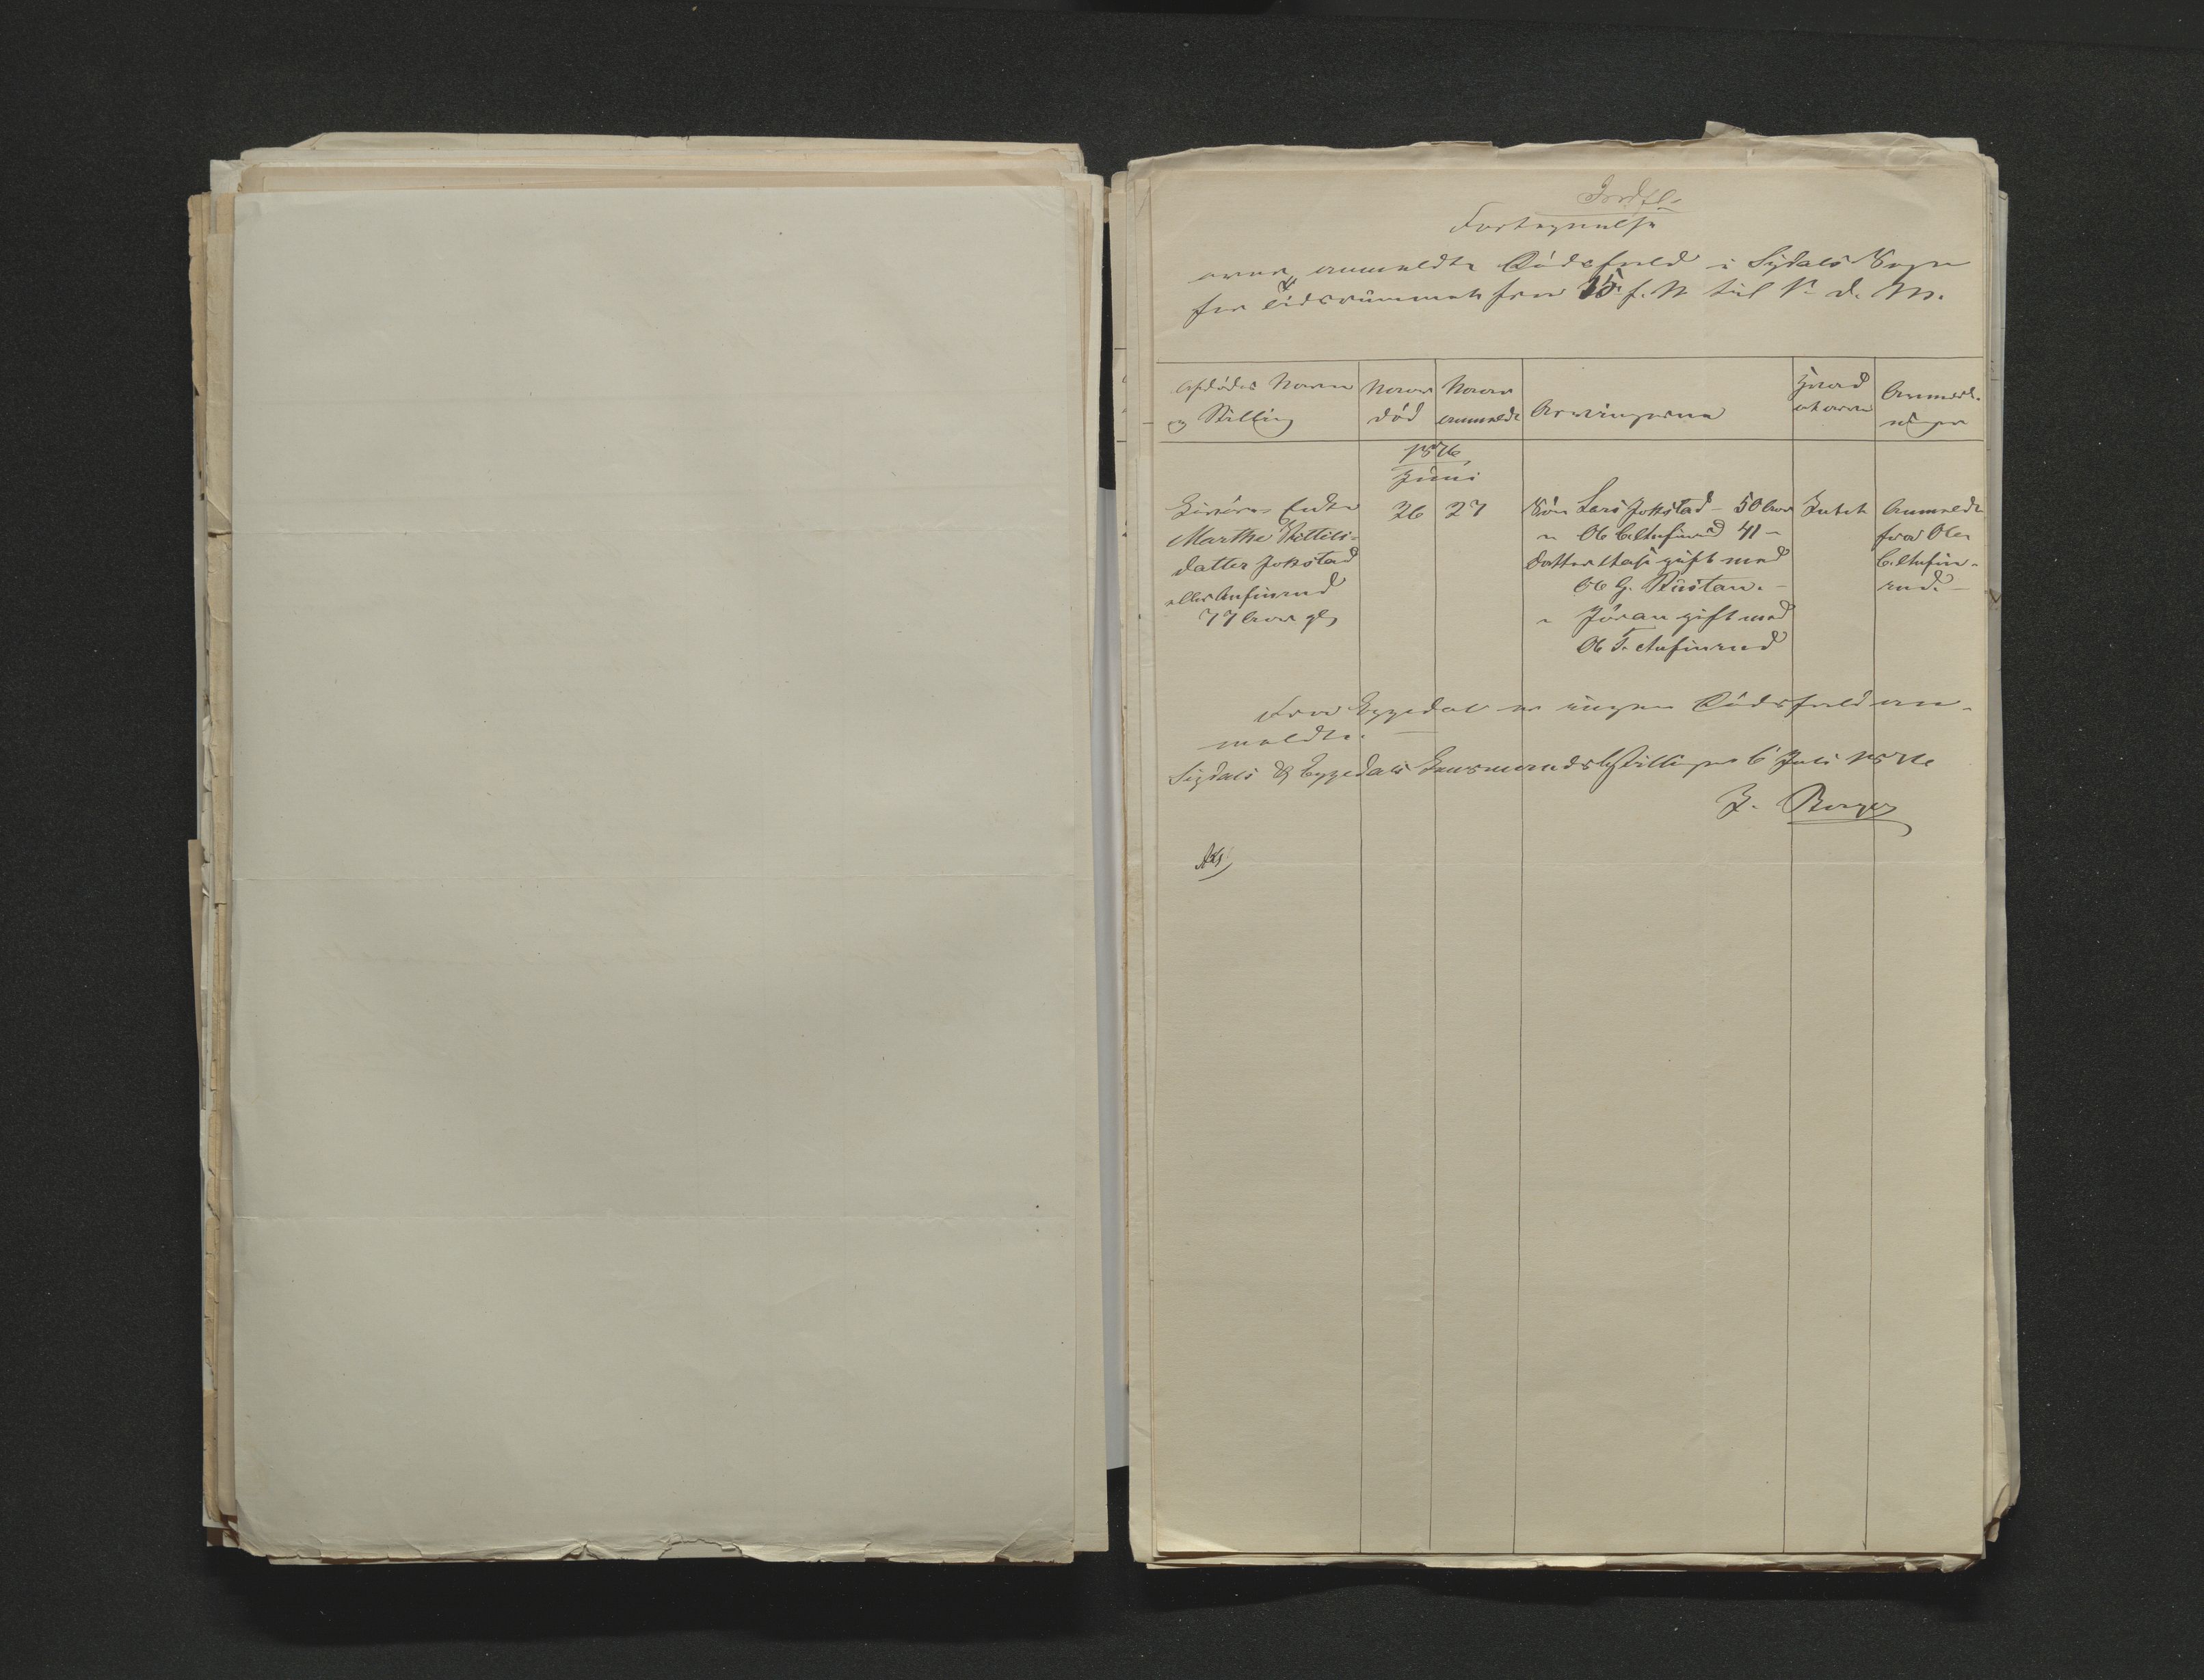 Fortegnelse
over anmeldte Dødsfald i Sigdals Sogn
for Tidsrummet fra 15. f. M. til 1. d. M.
Afdødes Navn
og Stilling
Naar
død
Naar
anmeldt
Arvingerne
Hvad
efterladt
Anmærk-
ninger
1876
Juni
Gaardm. Enke
Marthe Kittils-
datter Jokstad
eller Aufinrud
77 Aar gl.
26
27
Søn Lars Jokstad - 50 Aar
" Ole Aufinrud 41 -
Datter gift med
Ole G. Rustan. -
" Jøran gift med
Ole T. Aufinrud
Intet
Anmeldt
fra Ole
Aufin-
rud. -
Fra Eggedal er ingen Dødsfald an-
meldte. -
Sigdals & Eggedals Lensmandsbestilling 6 Juli 1876
Borger